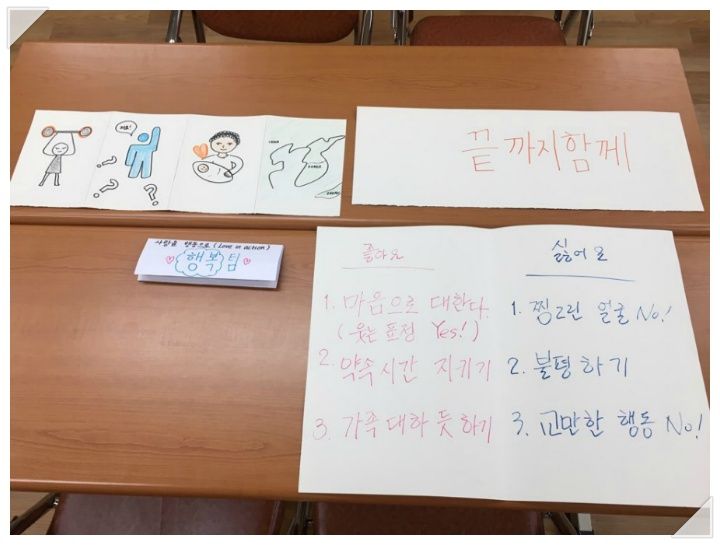 저요!
CHINA
KOREA
끝까지함께
사랑을 행동으로 (Love in action)
행복팀
좋아요
1. 마음으로 대한다.
(웃는 표정 Yes!)
2. 약속시간 지키기
3. 가족 대하 듯 하기
싫어요
1. 찡그린 얼굴 No!
2. 불평하기
3. 교만한 행동 No!